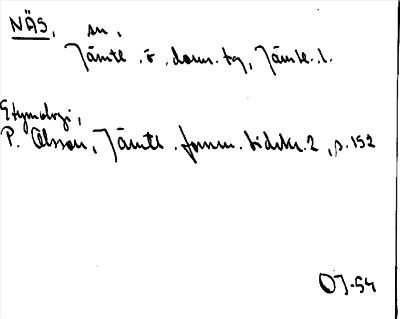 NÄS, sn,
Jämtl. ö. doms. tg, Jämtl. l.
Etymologi,
P. Olsson, Jämtl. fornm. tidskr. 2, s. 152
OJ-54